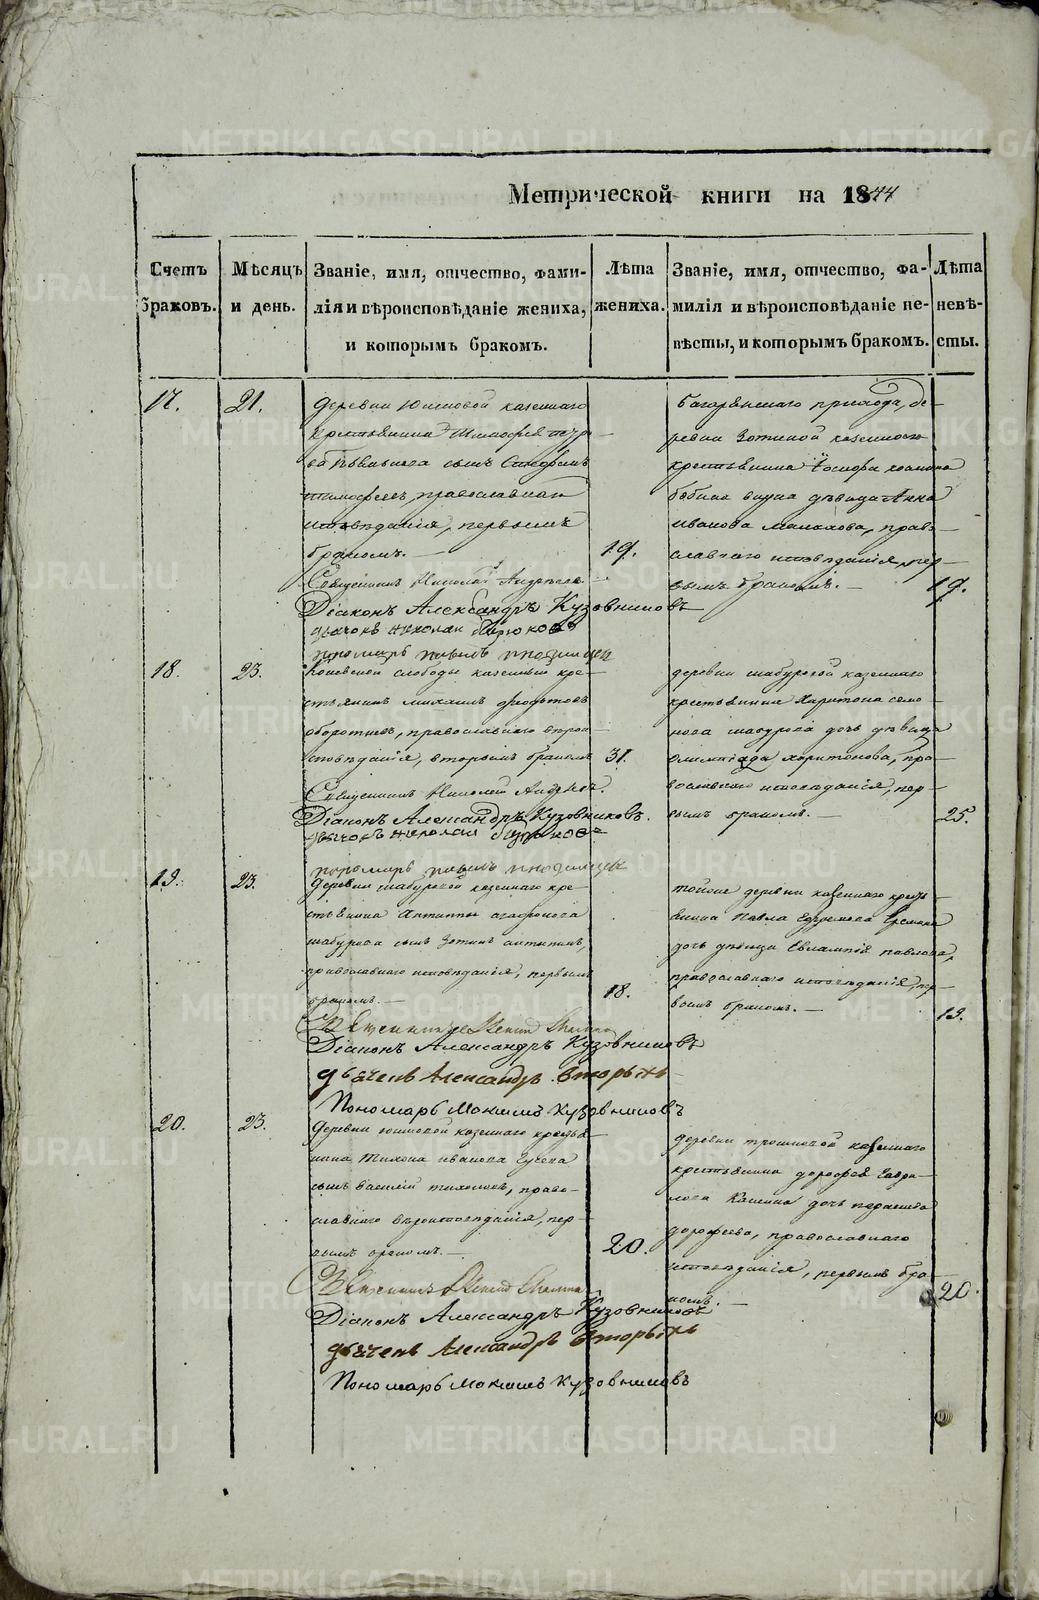 Метрической книги на 1844
Счетъ браковъ.
Мѣсяцъ и день.
Званіе, имя, отчество, фами-
лія и вѣроисповѣданіе жениха,
и которымъ бракомъ.
Лѣта
жениха.
Званіе, имя, отчество, фа-
милія и вѣроисповѣданіе не-
вѣсты, и которымъ бракомъ.
Лѣта
невѣ-
сты.
17.
21.
деревни Юшковой казеннаго
крестьянина Тимофея
сынъ
православнаго
исповѣданія, первымъ
бракомъ. —
19.
Священникъ Николай Андреевъ
Діаконъ Александръ Кузовниковъ
дьячекъ николай бирюковъ
пономарь
прихода, де-
ревни Зотиной казеннаго
крестьянина Іосифа
бабина внука дѣвица Анна
иванова малахова, право-
славнаго исповѣданія, пер-
вымъ бракомъ. —
19.
18.
23.
Коневской слободы казенный кре-
стьянинъ михаилъ
православнаго вѣрои-
сповѣданія, вторымъ бракомъ
31.
Священникъ Николай Андреевъ.
Діаконъ Александръ Кузовниковъ.
дьячекъ николай бирюковъ
пономарь
деревни шабуровой казеннаго
крестьянина Харитона семе-
нова шабурова дочь дѣвица
олимпіада харитонова, пра-
вославнаго исповѣданія, пер-
вымъ бракомъ. —
25.
19.
23.
деревни шабуровой казеннаго кре-
стьянина Антипы агафонова
шабурова сынъ Зотикъ антипинъ,
православнаго исповѣданія, первымъ
бракомъ. —
18.
Священникъ
Діаконъ Александръ Кузовниковъ
дьячекъ Александръ Вторыхъ
Пономарь Максимъ Кузовниковъ
тойже деревни казеннаго кресть-
янина Павла Ефремова Еремина
дочь дѣвица Евлампія павлова,
православнаго исповѣданія, пер-
вымъ бракомъ. —
19.
20.
23.
деревни юшковой казеннаго кресть-
янина Тихона иванова
сынъ василій тихоновъ, право-
славнаго вѣроисповѣданія, пер-
вымъ бракомъ. —
20.
Священникъ
Діаконъ Александръ Кузовниковъ
дьячекъ Александръ Вторыхъ
Пономарь Максимъ Кузовниковъ
деревни трошковой казеннаго
крестьянина дорофея Гаври-
лова Кашина дочь парасковья
дорофеева, православнаго
исповѣданія, первымъ бра-
комъ. —
20.
METRIKI.GASO-URAL.RU